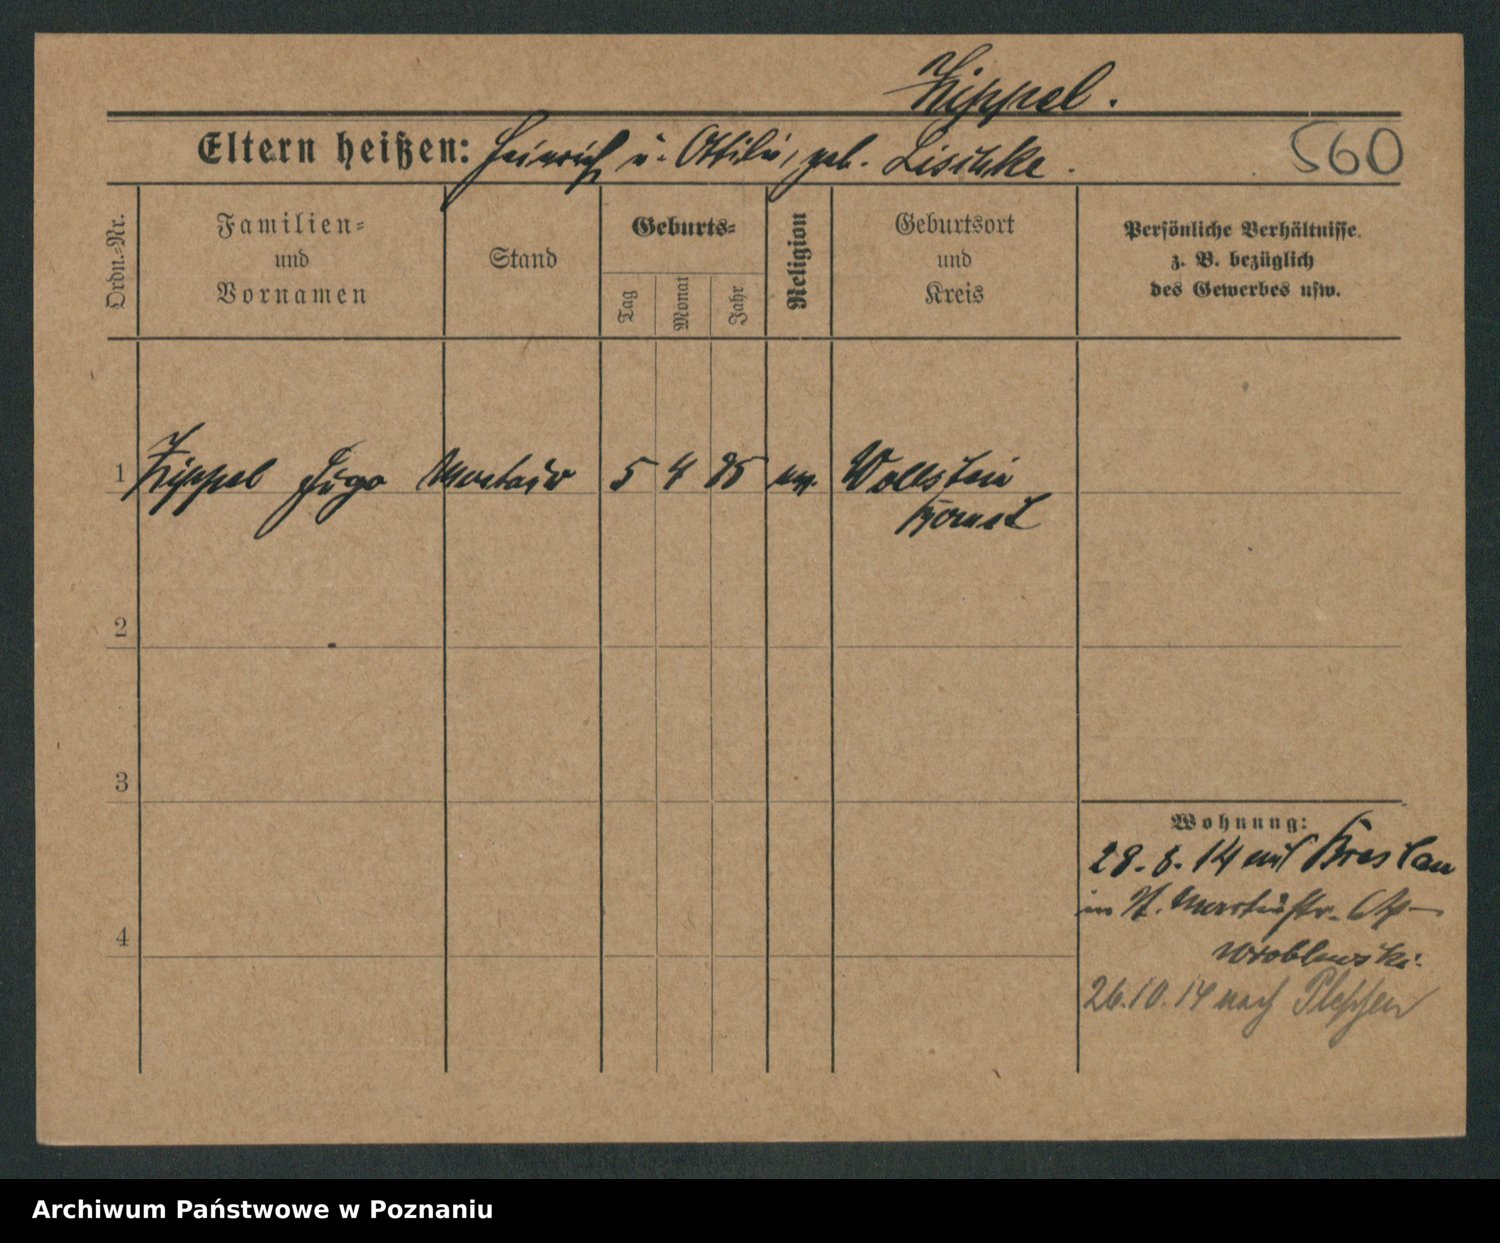 Zippel.
Eltern heißen: Heinrich u. Ottilie, geb. Lischke.
560
Ordn.-Nr.
Familien- und Vornamen
Stand
Geburts-
Tag
Monat
Jahr
Religion
Geburtsort und Kreis
Persönliche Verhältnisse z. B. bezüglich des Gewerbes usw.
1 Zippel Hugo 5 4 85 ev. Wollstein
Bomst
2
3
4
Wohnung:
28. 8. 14 aus Breslau
in St. Martinstr.
Wroblewski.
26.10.14 nach Pleschen
Archiwum Państwowe w Poznaniu